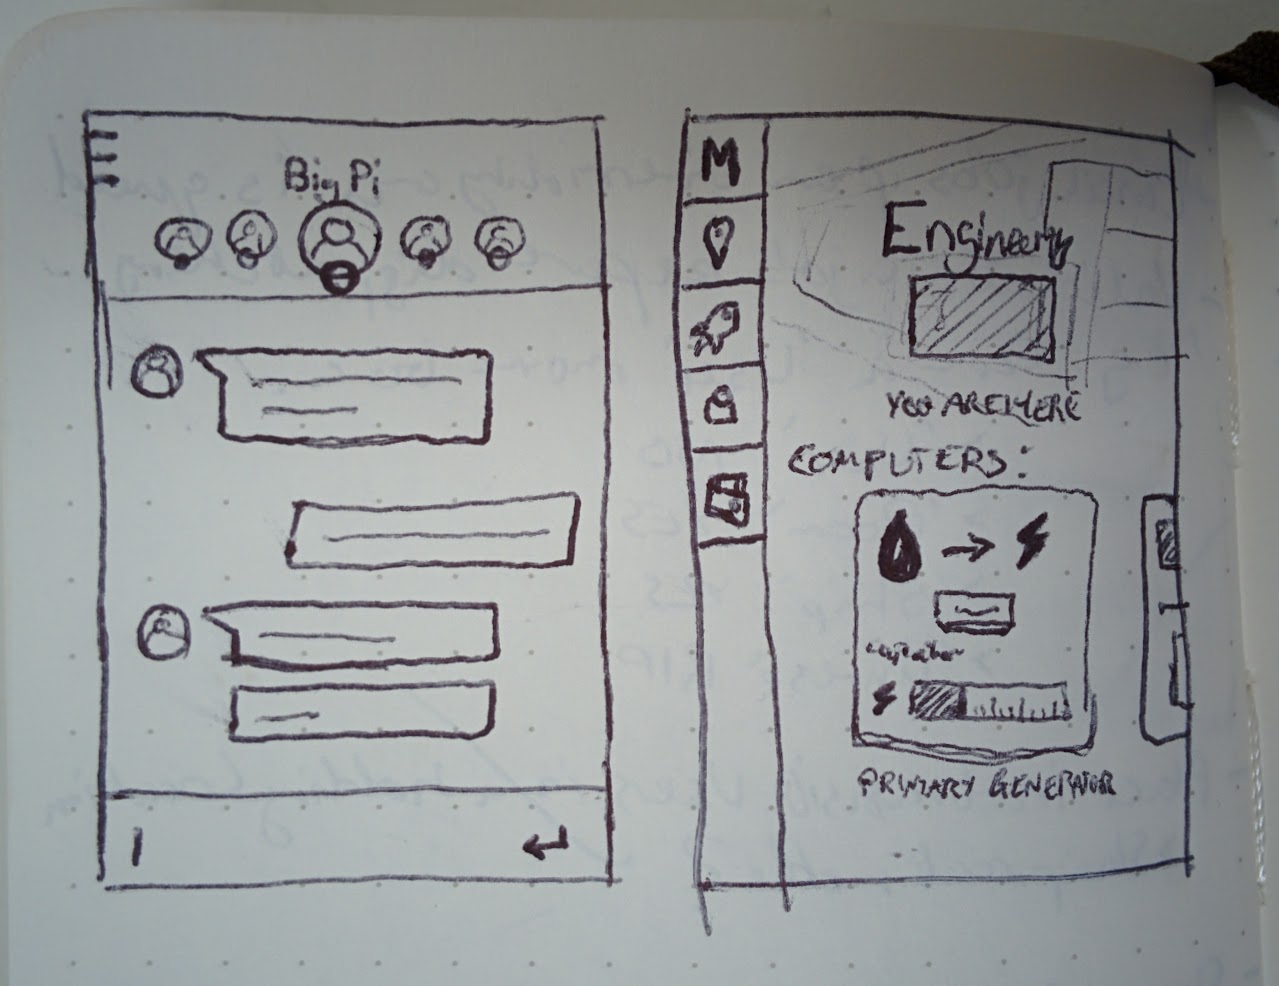 Big Pi
M
Engineering
YOU ARE HERE
COMPUTERS:
PRIMARY GENERATOR